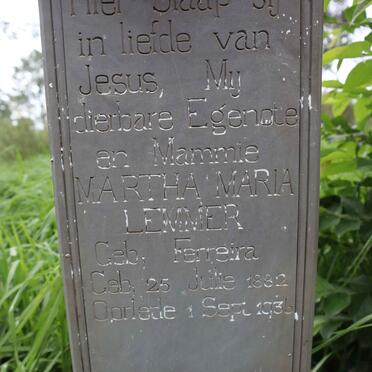 Hier Slaap Sy
in liefde van
Jesus, My
dierbare Egenote
en Mammie
MARTHA MARIA
LEMMER
Geb, Ferreira
Geb, 25 Julie 1892
Oorlede 1 Sept 1936